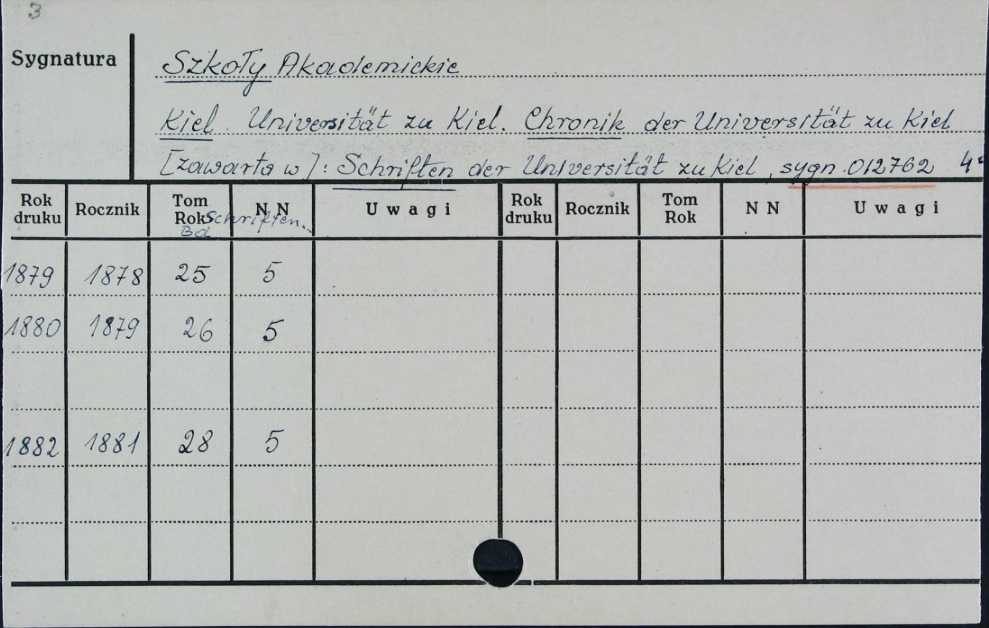 3
Sygnatura
Szkoły Akademickie
Kiel. Universität zu Kiel. Chronik der Universität zu Kiel
[zawarta w]: Schriften der Universität zu Kiel, sygn. 012762
Rok druku Rocznik Tom Rok N N Uwagi Rok druku Rocznik Tom Rok N N Uwagi
Schriften.
Bd
1879 1878 25 5
1880 1879 26 5
1882 1881 28 5